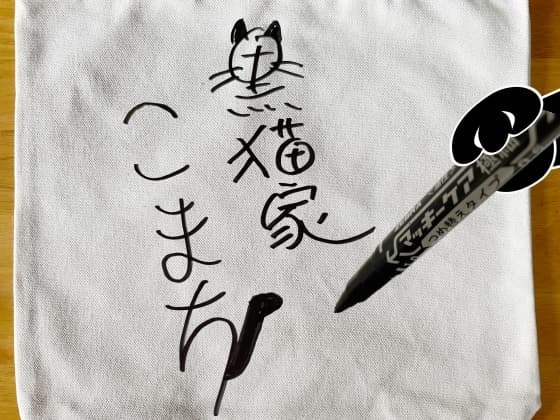 黒猫家
こまち
マッキーケア 極細
つめ替えタイプ